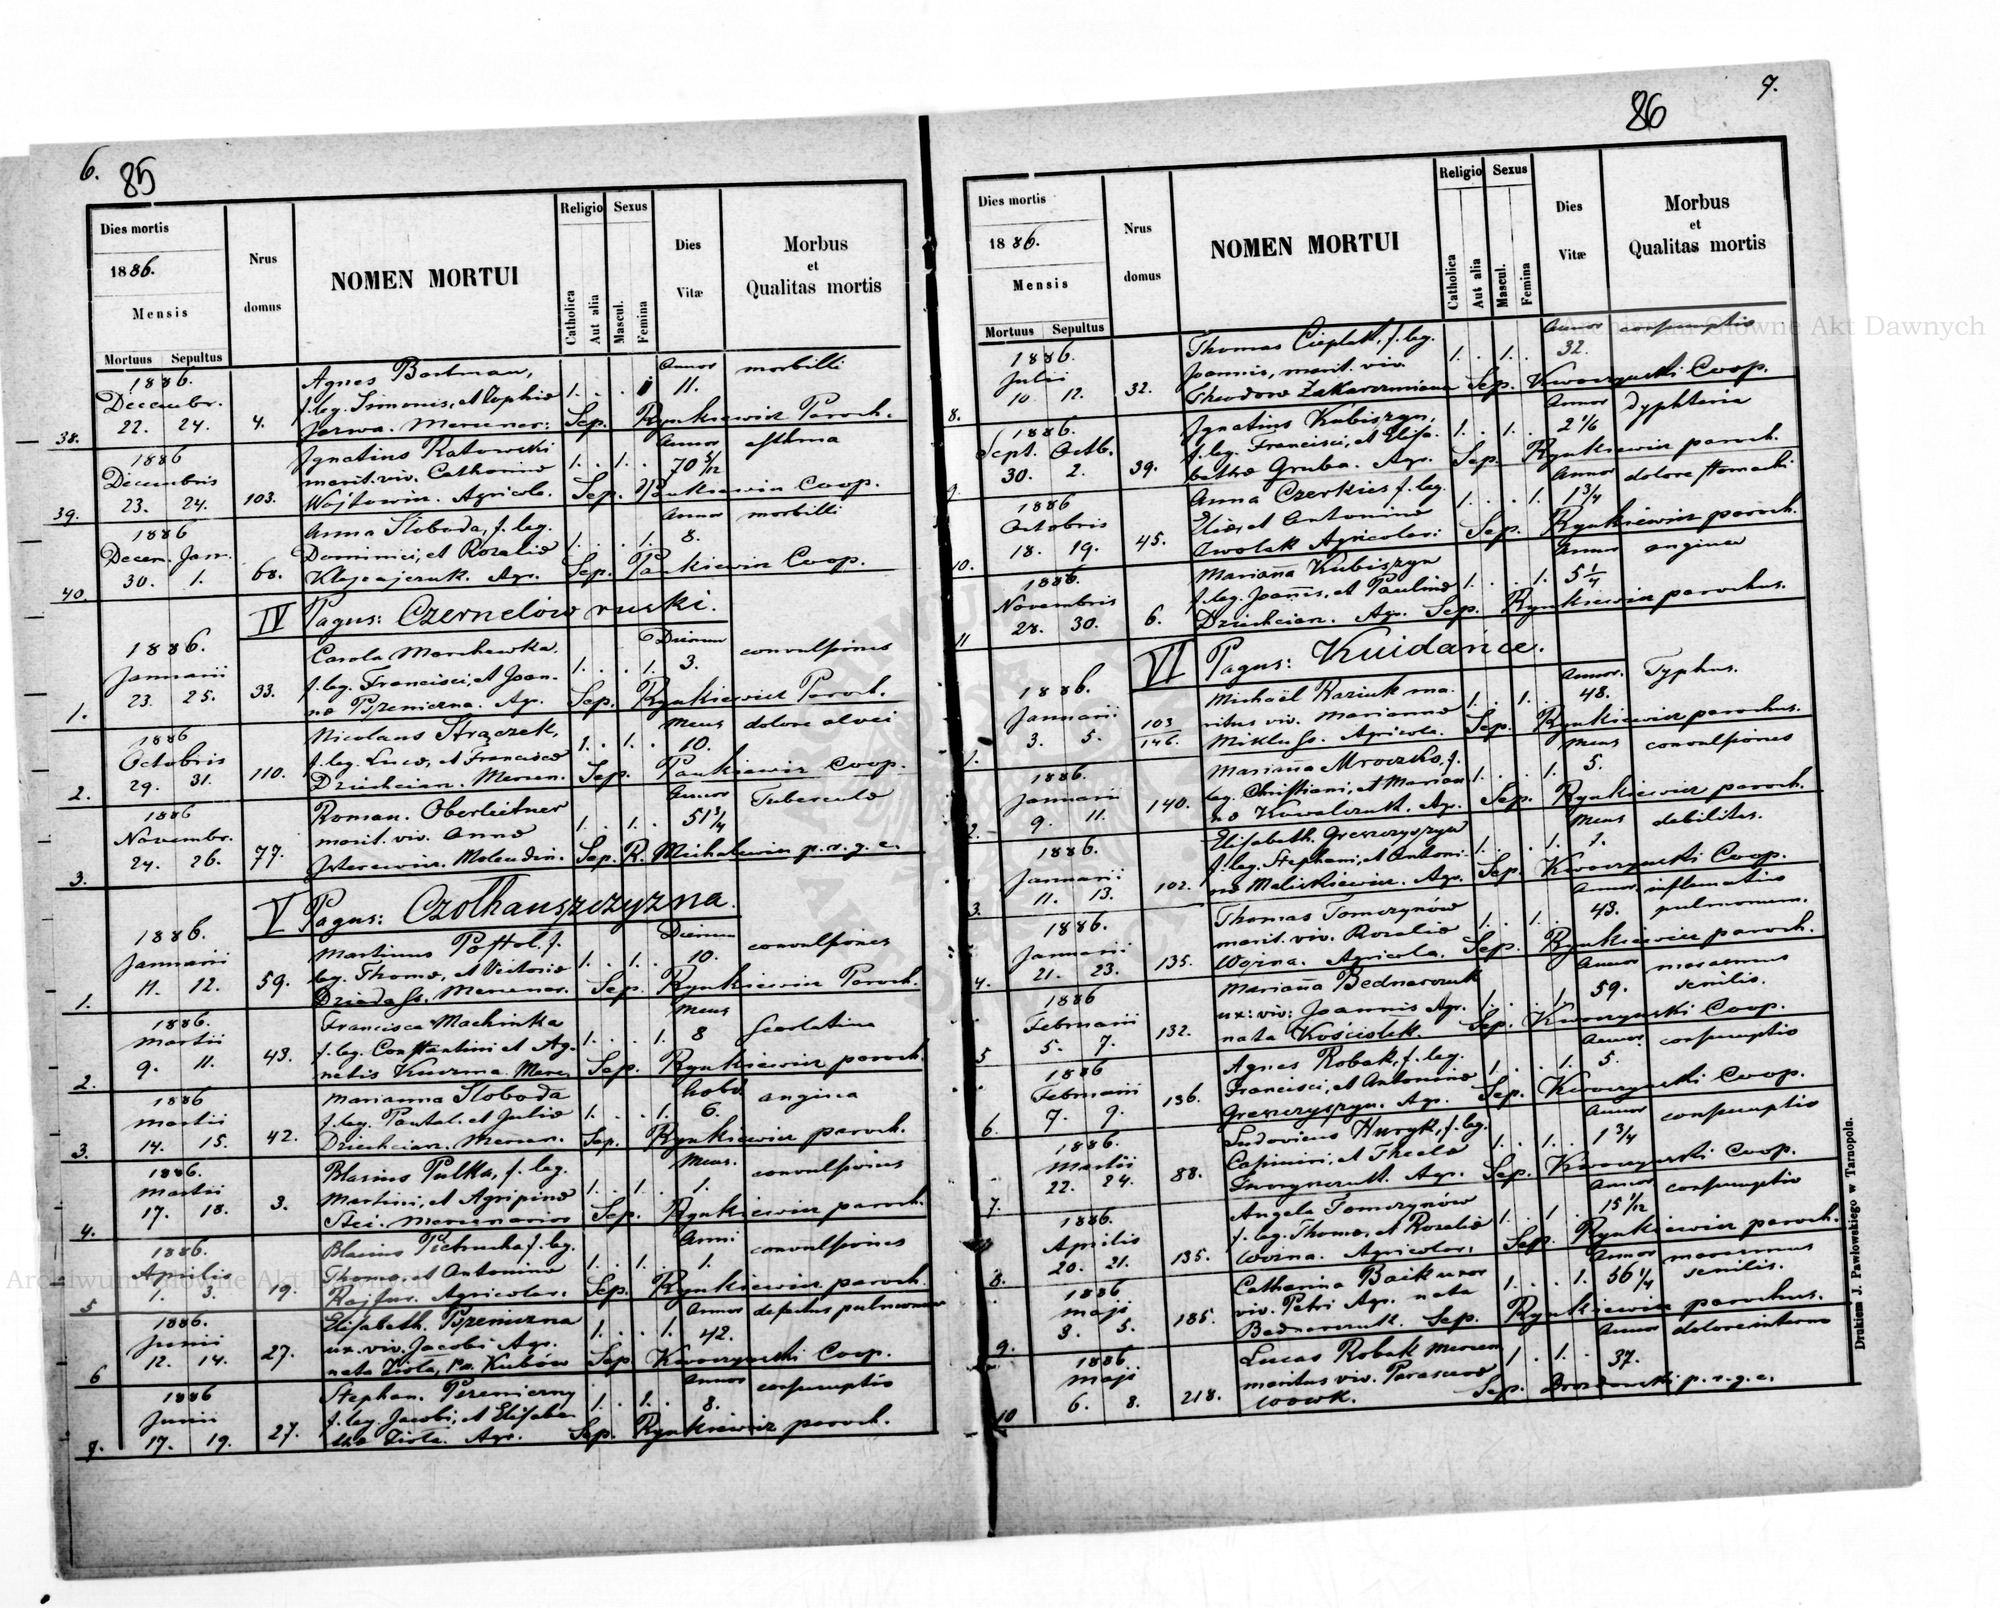 6. 85
Dies mortis
1886.
Mensis
Mortuus Sepultus
Nrus
domus
NOMEN MORTUI
Religio
Catholica
Aut alia
Sexus
Mascul.
Femina
Dies
Vitæ
Morbus
et
Qualitas mortis
1886. Agnes Bartman, Annor morbilli
Decembr. f. leg. Simonis, et Sophiæ 1. 11.
38. 22. 24. 4. Mercenar: Sep. Rynkiewicz Paroch.
1886 Ignatius Ratowski Annor asthma
Decembris marit. viv. Catharinæ 1. 1. 70 5/12
39. 23. 24. 103. Wojtowicz. Agricola. Sep. Pankiewicz Coop.
1886 Anna Sloboda, f. leg. Annor morbilli
Decem. Jan. Dominici, et Rozaliæ 1. 1. 8.
40. 30. 1. 68. Agr. Sep. Pankiewicz Coop.
IV Pagus: Czernelów ruski.
1886. Carola Marchewka. Dierum convulsiones
Januarii f. leg. Francisci, et Joan- 1. 1. 3.
1. 23. 25. 33. næ Pszeniczna. Agr. Sep. Rynkiewicz Paroch.
1886 Nicolaus Strączek, Mens dolore alvei
Octobris f. leg. Lucæ, et Franciscæ 1. 1. 10.
2. 29. 31. 110. Dziedzian. Mercen. Sep. Pankiewicz Coop.
1886 Roman. Oberleitner Annor Tuberculæ
Novembr. marit. viv. Annæ 1. 1. 51 3/4
3. 24. 26. 77. Molendin. Sep. R. Michalewicz p. r. g. c.
V Pagus: Czolhańszczyzna.
1886. Martinus f. Dierum convulsiones
Januarii leg. Thomæ, et Victoriæ 1. 1. 10.
1. 11. 12. 59. Mercenar. Sep. Rynkiewicz Paroch.
1886. Francisca Machinka Mens Scarlatina
Martii f. leg. Constantini et Ag- 1. 1. 8
2. 9. 11. 43. netis Kuzma. Merc. Sep. Rynkiewicz paroch.
1886 Marianna Sloboda hebd. angina
Martii f. leg. Pantal. et Juliæ 1. 1. 6.
3. 14. 15. 42. Dziedzian. Mercen. Sep. Rynkiewicz paroch.
1886. Blasius Pulka, f. leg. Mens. convulsiones
Martii Martini, et Agripinæ 1. 1. 1.
4. 17. 18. 3. Mercenarior Sep. Rynkiewicz paroch.
1886. Blasius Pietrucha f. leg. Anni convulsiones
Aprilis Thomæ, et Antoninæ 1. 1. 1.
5 1. 3. 19. Agricolar. Sep. Rynkiewicz paroch.
1886. Elisabeth. Pszeniczna Annor defectus pulmonum
Junii ux. viv. Jacobi Agr. 1. 1. 42.
6 12. 14. 27. nata Ziola, Kubów Sep. Kworzynski Coop.
1886 Stephan. Pszeniczny Annor consumptio
Junii f. leg. Jacobi, et Elisabe- 1. 1. 8.
7. 17. 19. 27. thæ Ziola. Agr. Sep. Rynkiewicz paroch.
86 7.
Dies mortis
1886.
Mensis
Mortuus Sepultus
Nrus
domus
NOMEN MORTUI
Religio
Catholica
Aut alia
Sexus
Mascul.
Femina
Dies
Vitæ
Morbus
et
Qualitas mortis
1886. Thomas Cieplak, f. leg. Annor consumptio
Julii Joannis, marit. viv. 1. 1. 32.
8. 10 12. 32. Theodoræ Sep. Kworzynski Coop.
1886. Ignatius Kubiszyn, Annor dyphteria
Sept. Octb. f. leg. Francisci, et Elisa- 1. 1. 2 1/6
9. 30. 2. 39. bethæ Gruba. Agr. Sep. Rynkiewicz paroch.
1886 Anna Czerkies f. leg. Annor dolore stomachi
Octobris Eliæ, et Antoninæ 1. 1. 1 3/4
10. 18. 19. 45. Cwolak Agricolar: Sep. Rynkiewicz paroch.
1886. Marianna Kubiszyn Annor angina
Novembris f. leg. Joannis, et Paulinæ 1. 1. 5 1/4
11 28. 30. 6. Dziedzian. Agr. Sep. Rynkiewicz parochus.
VI Pagus: Kuidańce.
1886. Michaël Raziuk ma- Annor. Typhus.
Januarii ritus viv. Mariannæ 1. 1. 48.
1. 3. 5. 103/146. Agricola. Sep. Rynkiewicz parochus.
1886. Marianna Mroczko, f. Mens convulsiones
Januarii leg. Christiani, et Marian- 1. 1. 5.
2. 9. 11. 140. næ Kowalczuk. Agr. Sep. Rynkiewicz paroch.
1886. Elisabeth. Greszczyszyn Mens debilitas.
Januarii f. leg. Stephani, et Antoni- 1. 1. 1.
3. 11. 13. 102. næ Maliskiewicz. Agr. Sep. Kworzynski Coop.
1886. Thomas Tomczynów Annor inflamatio
Januarii marit. viv. Rozaliæ 1. 1. 43. pulmonum.
4. 21. 23. 135. Woźna. Agricola. Sep. Rynkiewicz paroch.
1886 Marianna Bednarczuk Annor marasmus
Februarii ux: viv: Joannis Agr. 1. 1. 59. senilis.
5 5. 7. 132. nata Kościolek. Sep. Kworzynski Coop.
1886 Agnes Robak, f. leg. Annor consumptio
Februarii Francisci, et Antoninæ 1. 1. 5
6. 7. 9. 136. Greszczyszyn. Agr. Sep. Kworzynski Coop.
1886. Ludovicus Huryk, f. leg. Annor consumptio
Martii Casimiri, et Theclæ 1. 1. 1 3/4
7. 22. 24. 88. Agr. Sep. Kworzynski Coop.
1886. Angela Tomczynów Annor consumptio
Aprilis f. leg. Thomæ, et Rozaliæ 1. 1. 15 1/12
8. 20. 21. 135. Woźna. Agricolar. Sep. Rynkiewicz paroch.
1886 Catharina Baik uxor Annor marasmus
Maji viv. Petri Agr. nata 1. 1. 56 1/4 senilis.
9. 3. 5. 185. Bednarczuk. Sep. Rynkiewicz parochus.
1886. Lucas Robak Mercen Annor dolore interno
Maji maritus viv. Parascevæ 1. 1. 37.
10 6. 8. 218. Sep. Drozdowski p. r. g. c.
Drukiem J. Pawłowskiego w Tarnopolu.
Archiwum Główne Akt Dawnych
Archiwum Główne Akt Dawnych